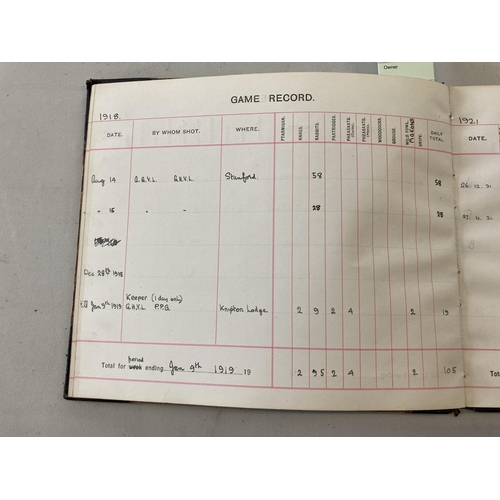 Owner
GAME RECORD.
1918.
1921
DATE. BY WHOM SHOT. WHERE. PTARMIGAN. HARES. RABBITS. PARTRIDGES. PHEASANTS. PHEASANTS. WOODCOCKS. GROUSE. WILD FOWL. PIGEONS SNIPE. DAILY TOTAL. DATE.
Aug 14 G.H.V.L. Stanford 58 58
" 15 " " 28 28
Dec 28th 1918
till Jan 9th 1919 Keeper (1 day only)
G.H.V.L P.P.G. Knipton Lodge 2 9 2 4 2 19
period
Total for week ending Jan 9th 1919 19 2 95 2 4 2 105
26. 12. 21
TOTAL